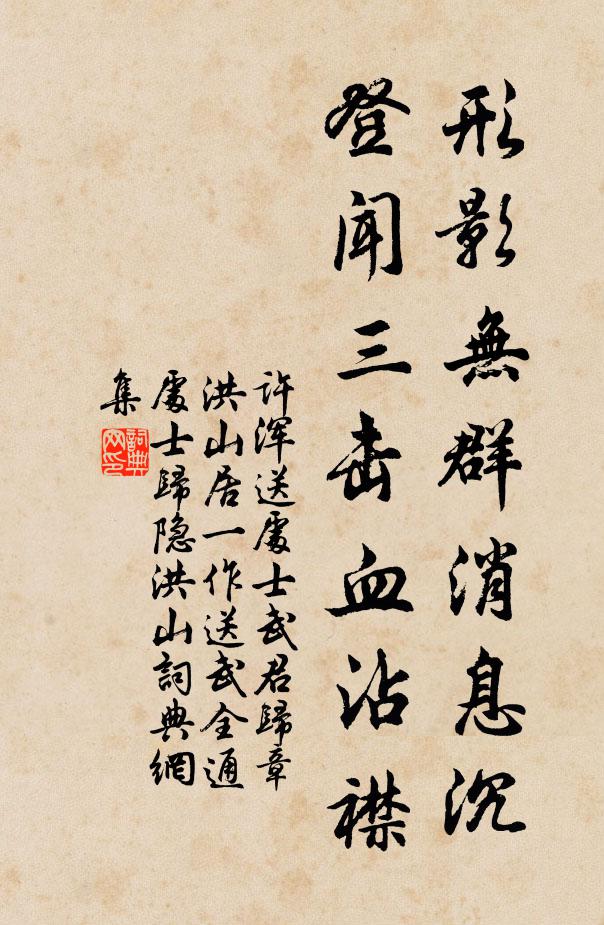 形影無群消息沉
登聞三击血沾襟
许浑送處士武君歸章
洪山居一作送武全通
處士歸隐洪山詞典網
集
詞典
网印